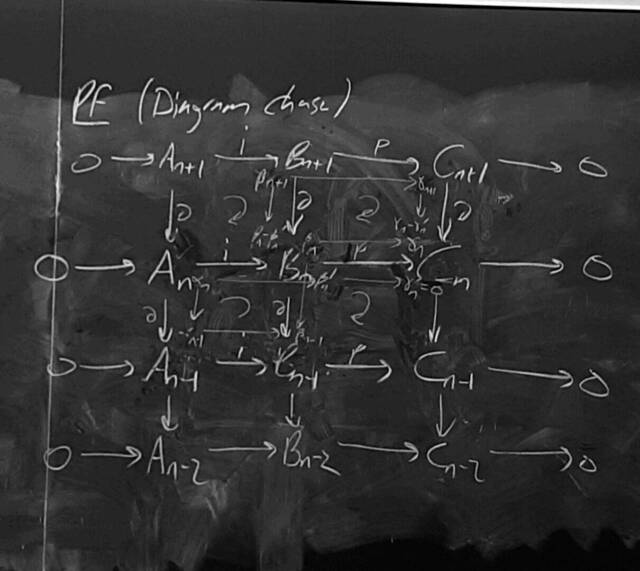 PF (Diagram chase)
0 → A_{n+1} →^{i} B_{n+1} →^{p} C_{n+1} → 0
β_{n+1} → γ_{n+1}
↓∂ ↓∂ ↓∂
0 → A_n →^{i} B_n →^{p} C_n → 0
∂↓ ∂↓ ↓
0 → A_{n-1} →^{i} B_{n-1} →^{p} C_{n-1} → 0
↓ ↓ ↓
0 → A_{n-2} → B_{n-2} → C_{n-2} → 0